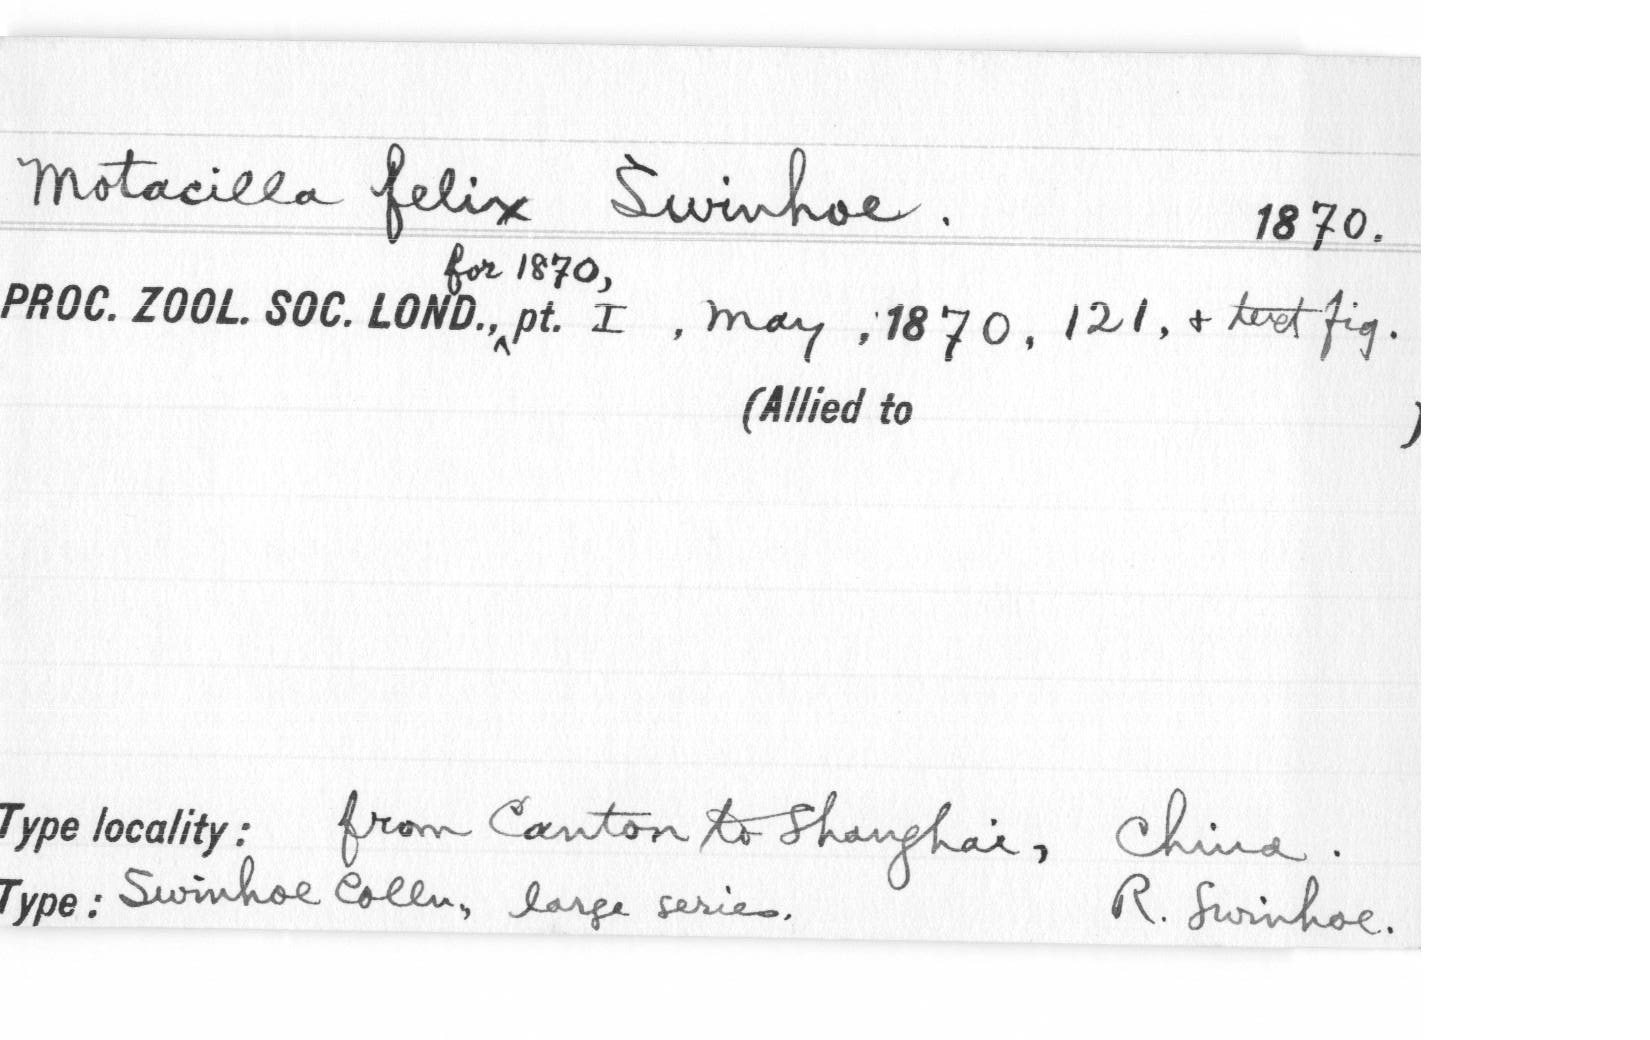 Motacilla felix Swinhoe. 1870.
for 1870,
PROC. ZOOL. SOC. LOND., ^ pt. I, May, 1870, 121, + text fig.
(Allied to )
Type locality: from Canton to Shanghai, China.
Type: Swinhoe Colln, large series. R. Swinhoe.